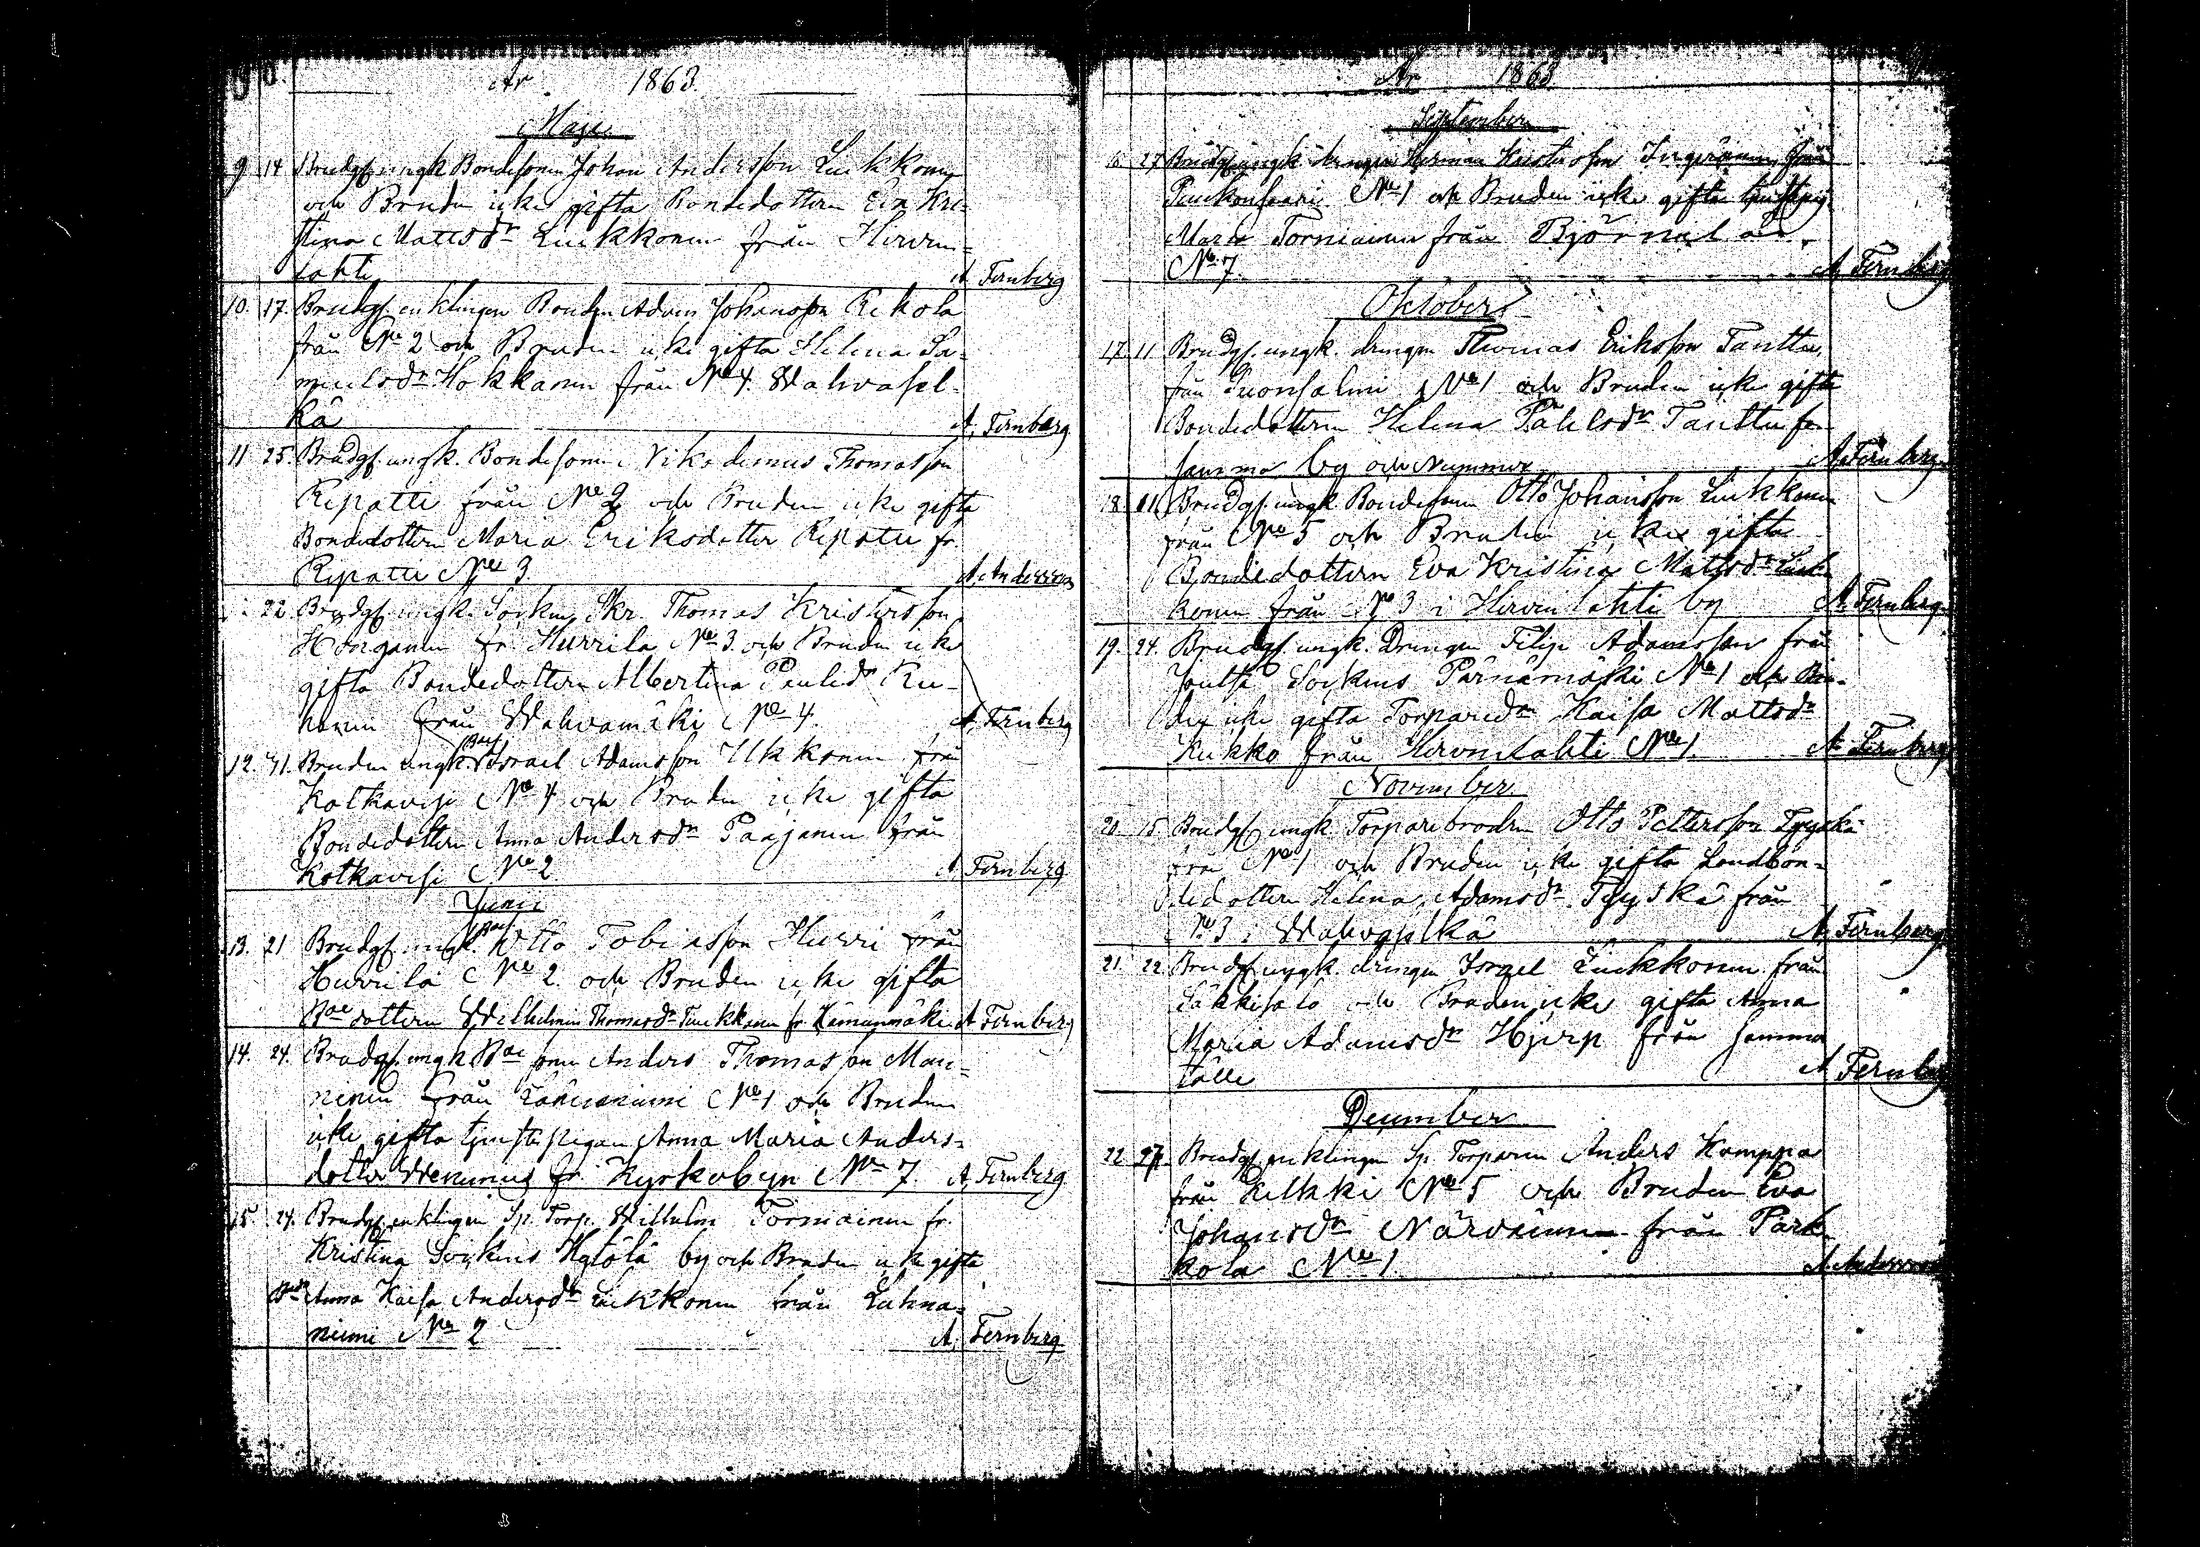 År 1863.
Maji
9 14 Brudg. ungk. Bondesonen Johan Andersson Liukkonen
och Bruden icke gifta Bondedottern Eva Kri-
stina Mattsdr Liukkonen från Hirven-
lahti A. Fernberg
10. 17. Brudg. enklingen Bonden Adam Johansson Rekola
från No 2 och Bruden icke gifta Helena Sa-
muelsdr Hokkanen från No 4. Wahvasel-
kä A. Fernberg
11 25. Brudg. ungk. Bondesonen Nikodemus Thomasson
Ripatti från No 2 och Bruden icke gifta
Bondedottern Maria Eriksdotter Ripatti fr.
Ripatti No 3 A. Andersson
22. Brudg. ungk. Socken Skr. Thomas Kristersson
Horganen fr. Hurrila No 3. och Bruden icke
gifta Bondedottern Albertina Paulsdr Ru-
honen från Wahvamäki No 4. A. Fernberg
12. 31. Bruden ungk. Israel Adamsson Ukkonen från
Kotkavesi No 4 och Bruden icke gifta
Bondedottern Anna Andersdr Paajanen från
Kotkavesi No 2 A. Fernberg
Junii
13. 21 Brudg. ungk. Otto Tobiasson Hurri från
Hurrila No 2 och Bruden icke gifta
Bdedottern Wilhelmin Thomasdr Tuukkanen fr. Hämeenmäki A. Fernberg
14. 24. Brudg. ungk. Bdesonen Anders Thomasson Man-
ninen från No 1 och Bruden
icke gifta tjenstepigan Anna Maria Anders-
dotter fr. Kyrkobyn No 7. A. Fernberg
15. 24. Brudg. enklingen Sp. Torp. Wilhelm Torniainen fr.
Kristina Sockens by och Bruden icke gifta
Anna Kaisa Andersdr Liukkonen från Lahna-
niemi No 2 A. Fernberg
År 1863
September
27 Brudg. ungk. drängen Herman Kristersson från
No 1 och Bruden icke gifta tjenstepig.
Maria Torniainen från Björnilä
No 7. A. Fernberg
Oktober
17 11 Brudg. ungk. drängen Thomas Eriksson Tanttu,
från Suonsalmi No 1 och Bruden icke gifta
Bondedottern Helena Påhlsdr Tanttu från
samma by och Nummer A. Fernberg
18. 11. Brudg. ungk. Bondesonen Otto Johansson Liukkonen
från No 5 och Bruden icke gifta
Bondedottern Eva Kristina Mattsdr Liuk-
konen från No 3 i Hirvenlahti by A. Fernberg
19. 24. Brudg. ungk. Drängen Filip Adamsson från
Joutsa Sockens Pärnämäki No 1 och Bru-
den icke gifta Torparedr Kaisa Mattsdr
Kukko från Hirvenlahti No 1. A. Fernberg
November
20 15 Brudg. ungk. Torparebrodren Otto Pettersson Tyyskä
från No 1 och Bruden icke gifta Landbon-
dedottern Helena Adamsdr Tyyskä från
No 3 i Wahvaselkä A. Fernberg
21. 22. Brudg. ungk. drängen Israel Liukkonen från
Säkkisalo och Bruden icke gifta Anna
Maria Adamsdr Hjerp från samma
ställe A. Fernberg
December
22 27. Brudg. enklingen Sp. Torparen Anders Komppa
från Kilkki No 5 och Bruden Eva
Johansdr Närvänen från Park-
kola No 1 A. Andersson